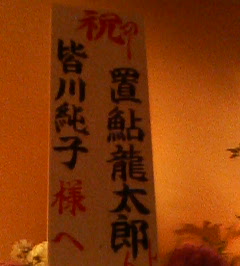 祝
皆川純子様へ
置鮎龍太郎
より